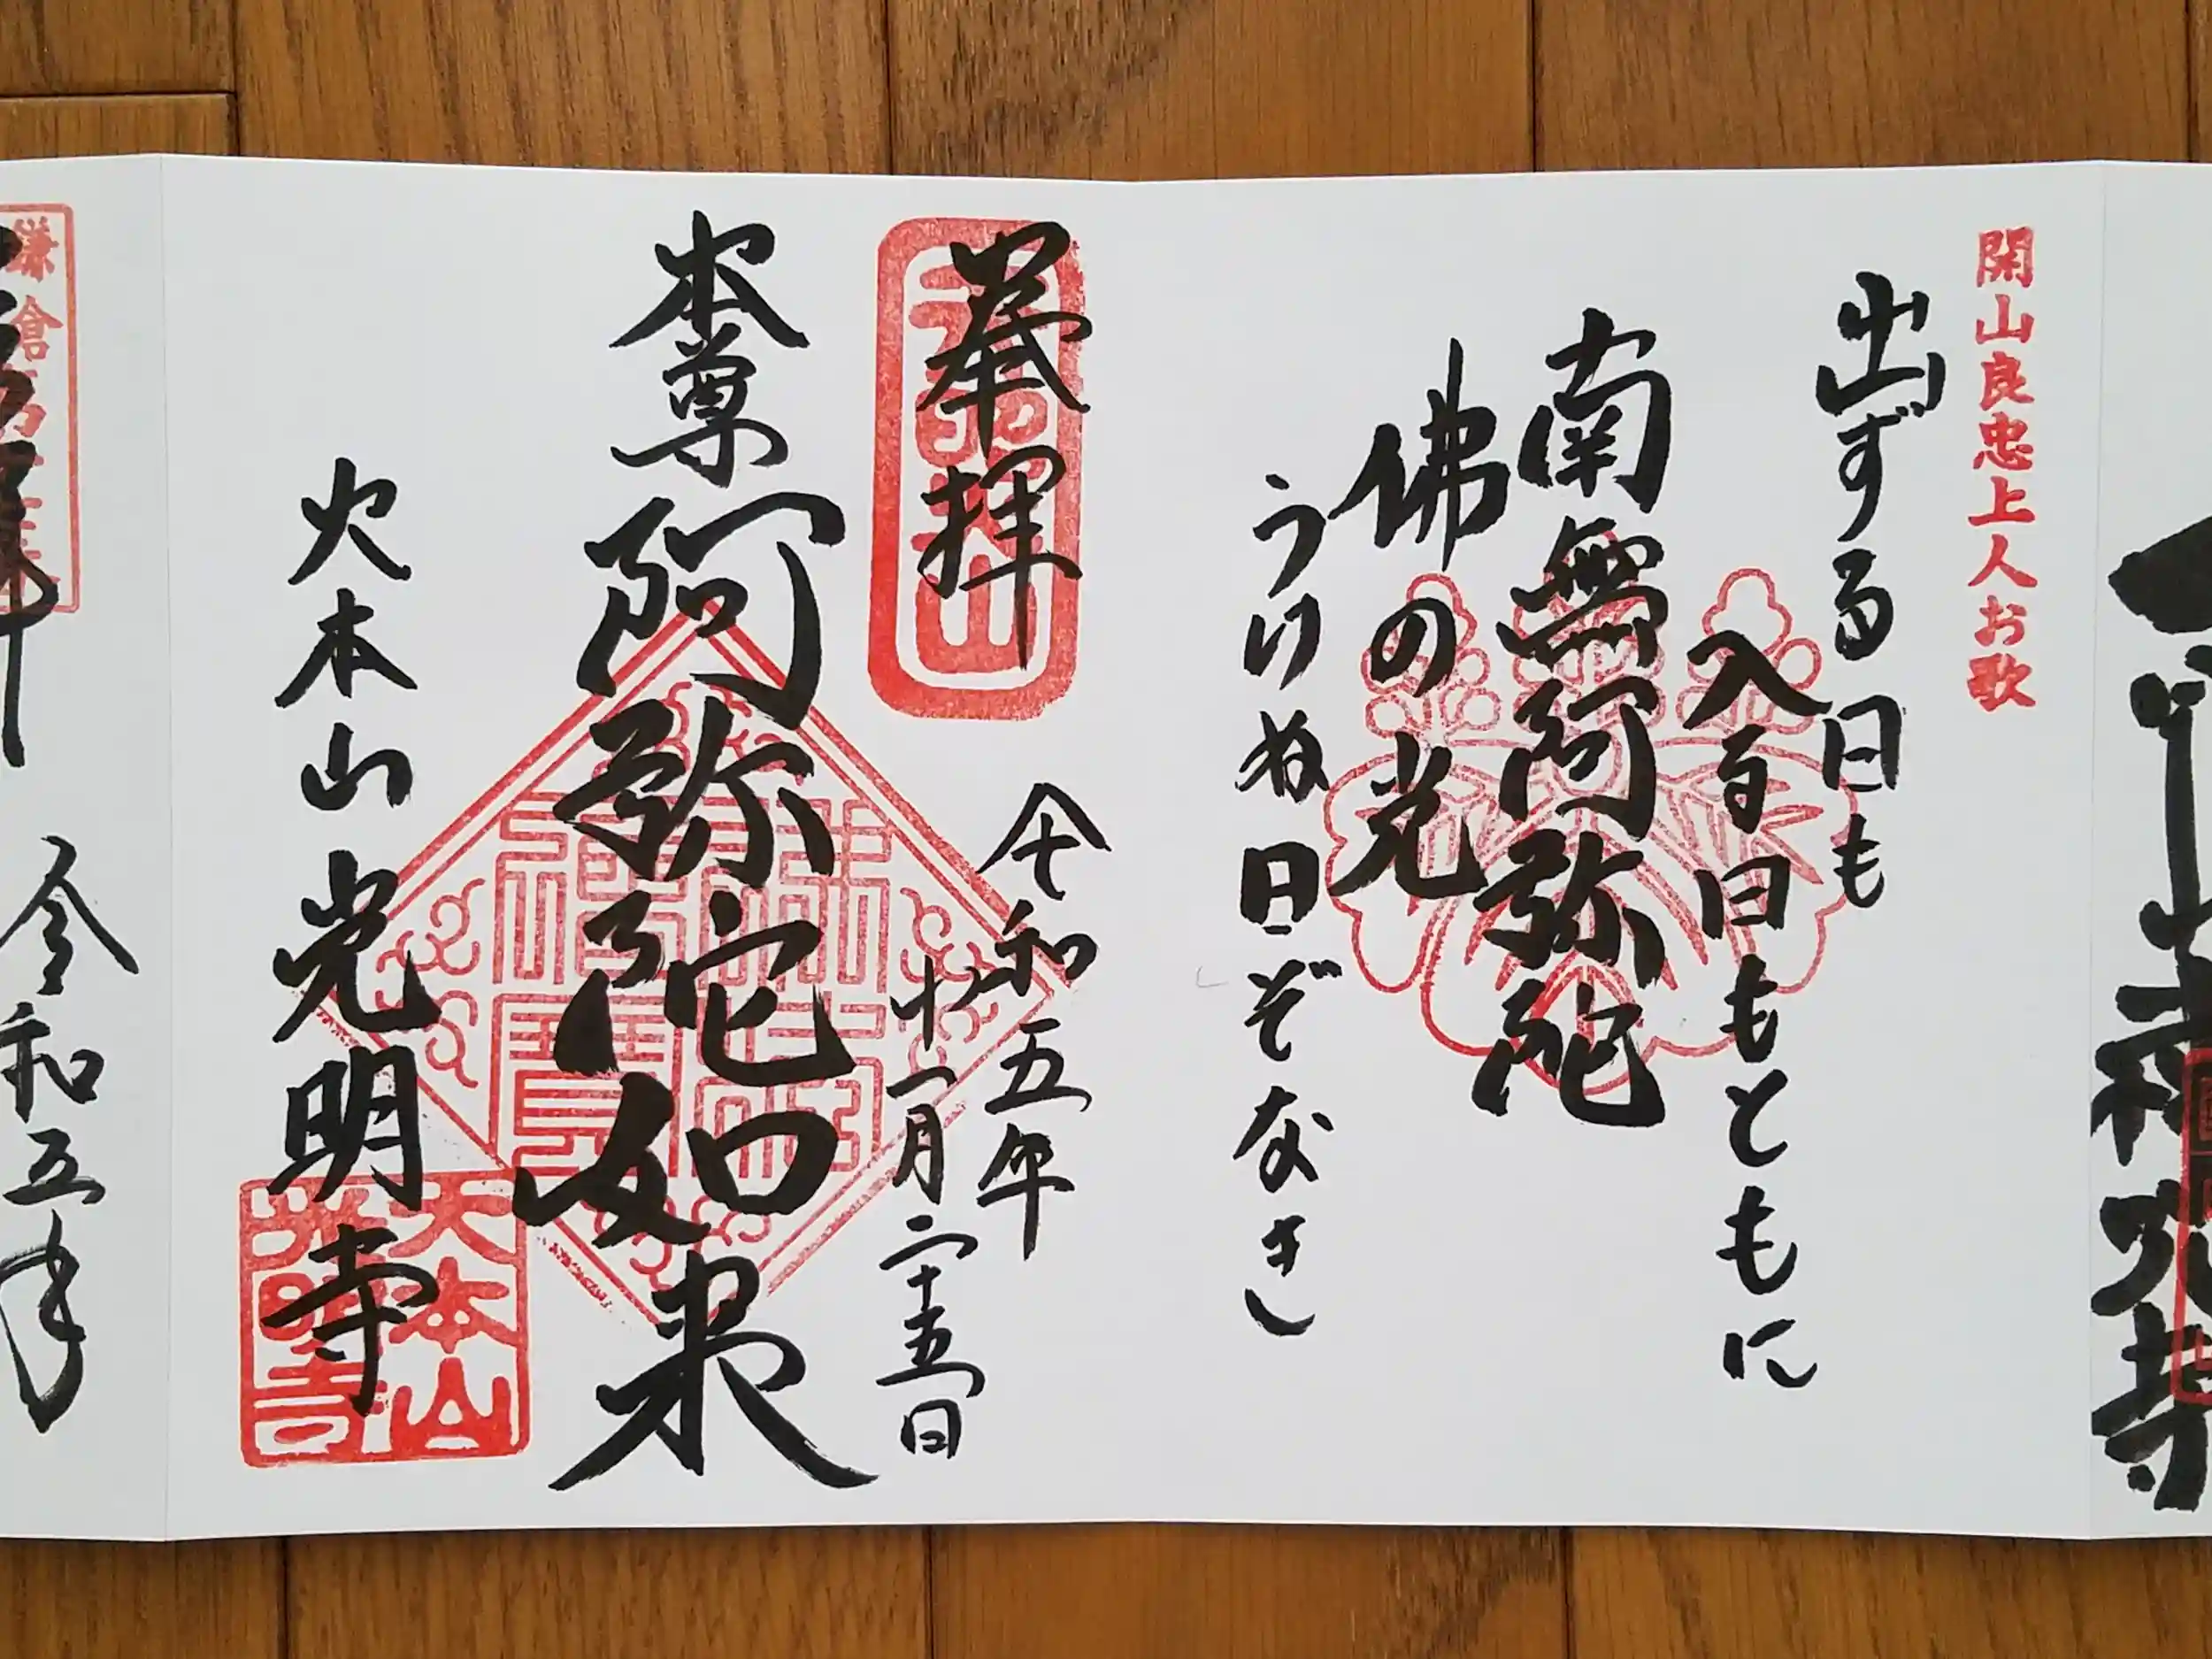 開山良忠上人お歌
出ずる日も
入る日もともに
南無阿弥陀
佛の光
うけぬ日ぞなき
奉拝
令和五年
十一月二十五日
本尊 阿弥陀如来
大本山 光明寺
天照山
大本山
光明寺
鎌倉
令和五年